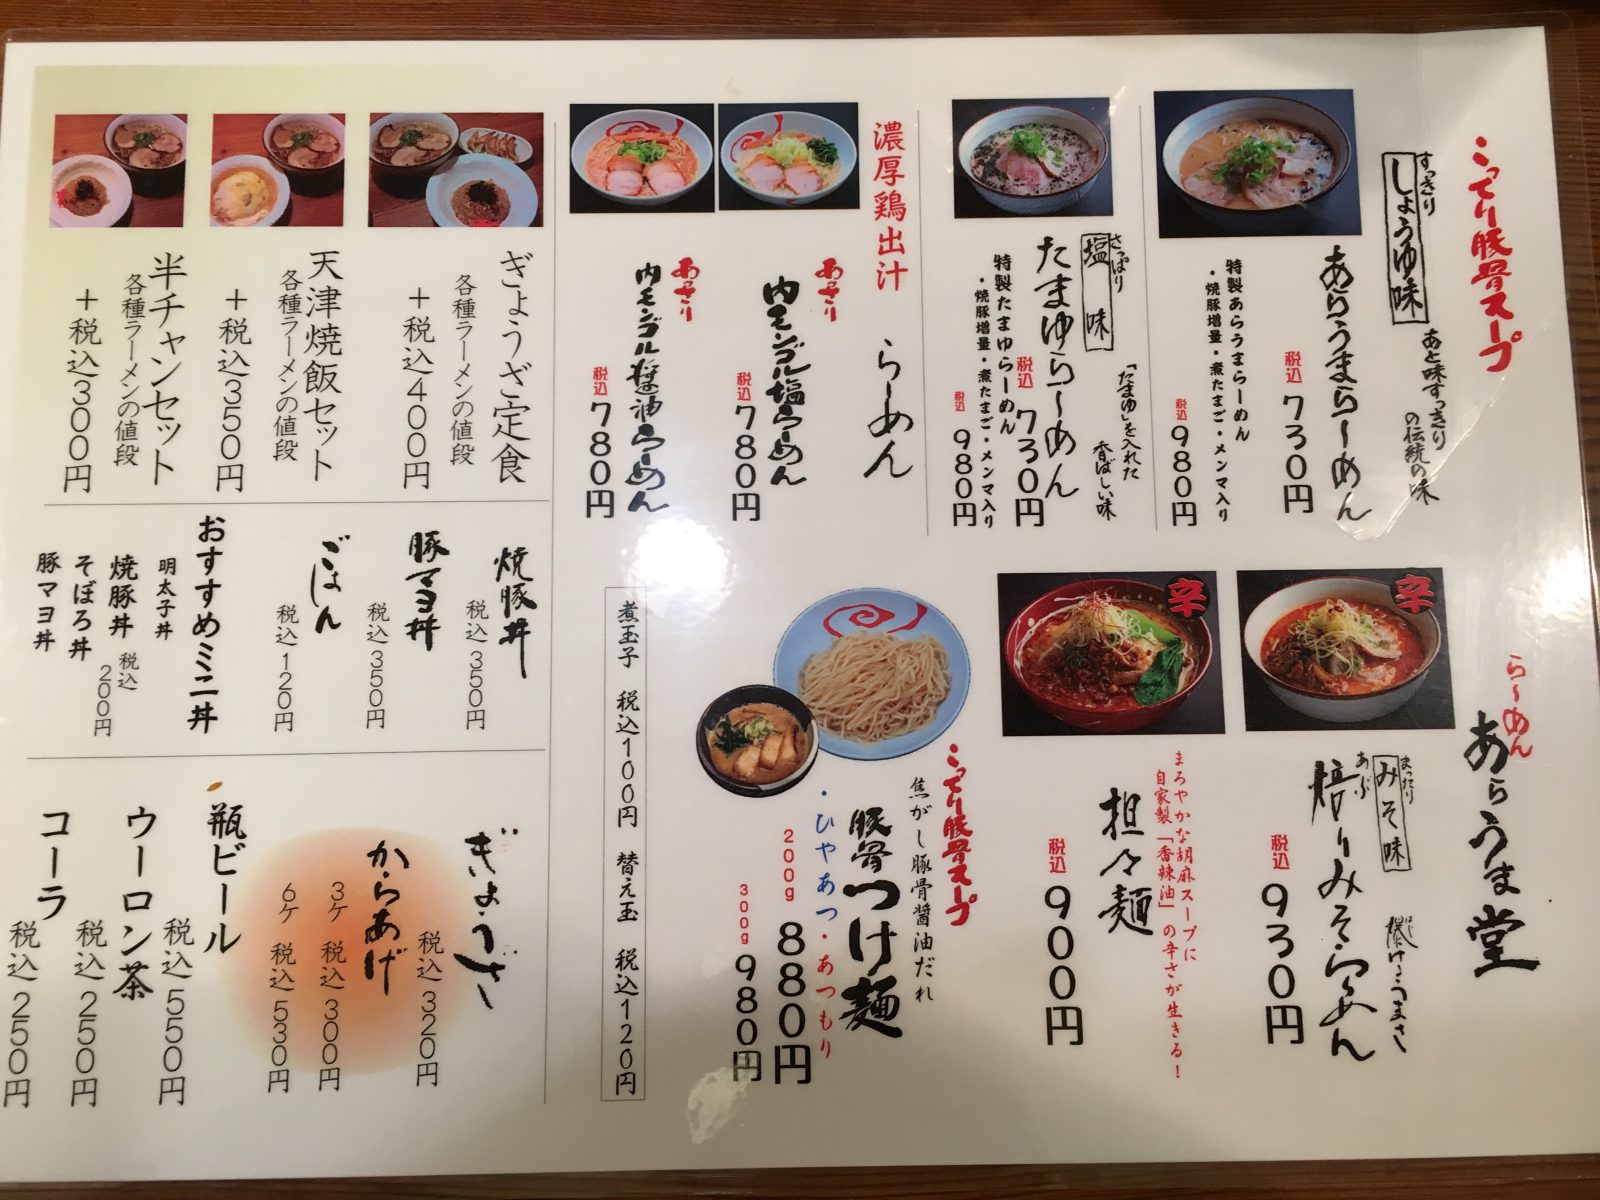 こってり豚骨スープ
すっきり
しょうゆ味
あと味すっきり
の伝統の味
あらうまらーめん
税込730円
特製あらうまらーめん
・焼豚増量・煮たまご・メンマ入り
税込980円
さっぱり
塩味
「たまゆ」を入れた
香ばしい味
たまゆらーめん
税込730円
特製たまゆらーめん
・焼豚増量・煮たまご・メンマ入り
税込980円
濃厚鶏出汁 らーめん
あっさり
内モンゴル塩らーめん
税込780円
あっさり
内モンゴル醤油らーめん
税込780円
らーめん
あらうま堂
辛
まったり
みそ味
あぶ
焙りみそらーめん
税込930円
辛
まろやかな胡麻スープに
自家製「香辣油」の辛さが生きる!
担々麺
税込900円
こってり豚骨スープ
焦がし豚骨醤油だれ
豚骨つけ麺
・ひやあつ・あつもり
200g 880円
300g 980円
煮玉子 税込100円 替え玉 税込120円
ぎょうざ定食
各種ラーメンの値段
+税込400円
天津焼飯セット
各種ラーメンの値段
+税込350円
半チャンセット
各種ラーメンの値段
+税込300円
焼豚丼
税込350円
豚マヨ丼
税込350円
ごはん
税込120円
おすすめミニ丼
明太子丼
焼豚丼
そぼろ丼
豚マヨ丼
税込200円
ぎょうざ
税込320円
からあげ
3ケ 税込300円
6ケ 税込530円
瓶ビール
税込550円
ウーロン茶
税込250円
コーラ
税込250円